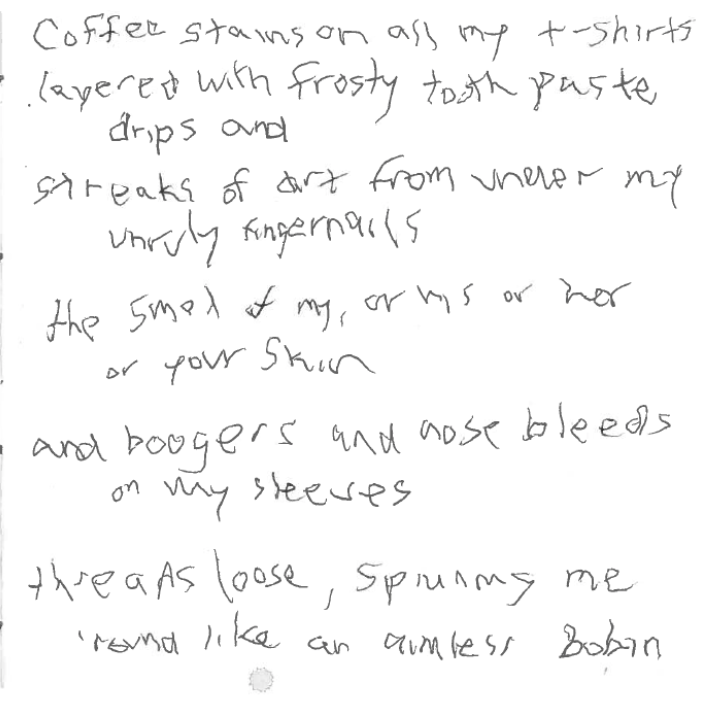 Coffee stains on all my t-shirts
layered with frosty tooth paste
drips and
streaks of art from under my
unruly fingernails
the smel of my, or his or her
or your skin
and boogers and nose bleeds
on my sleeves
threads loose, spinning me
'round like an aimless Bobin